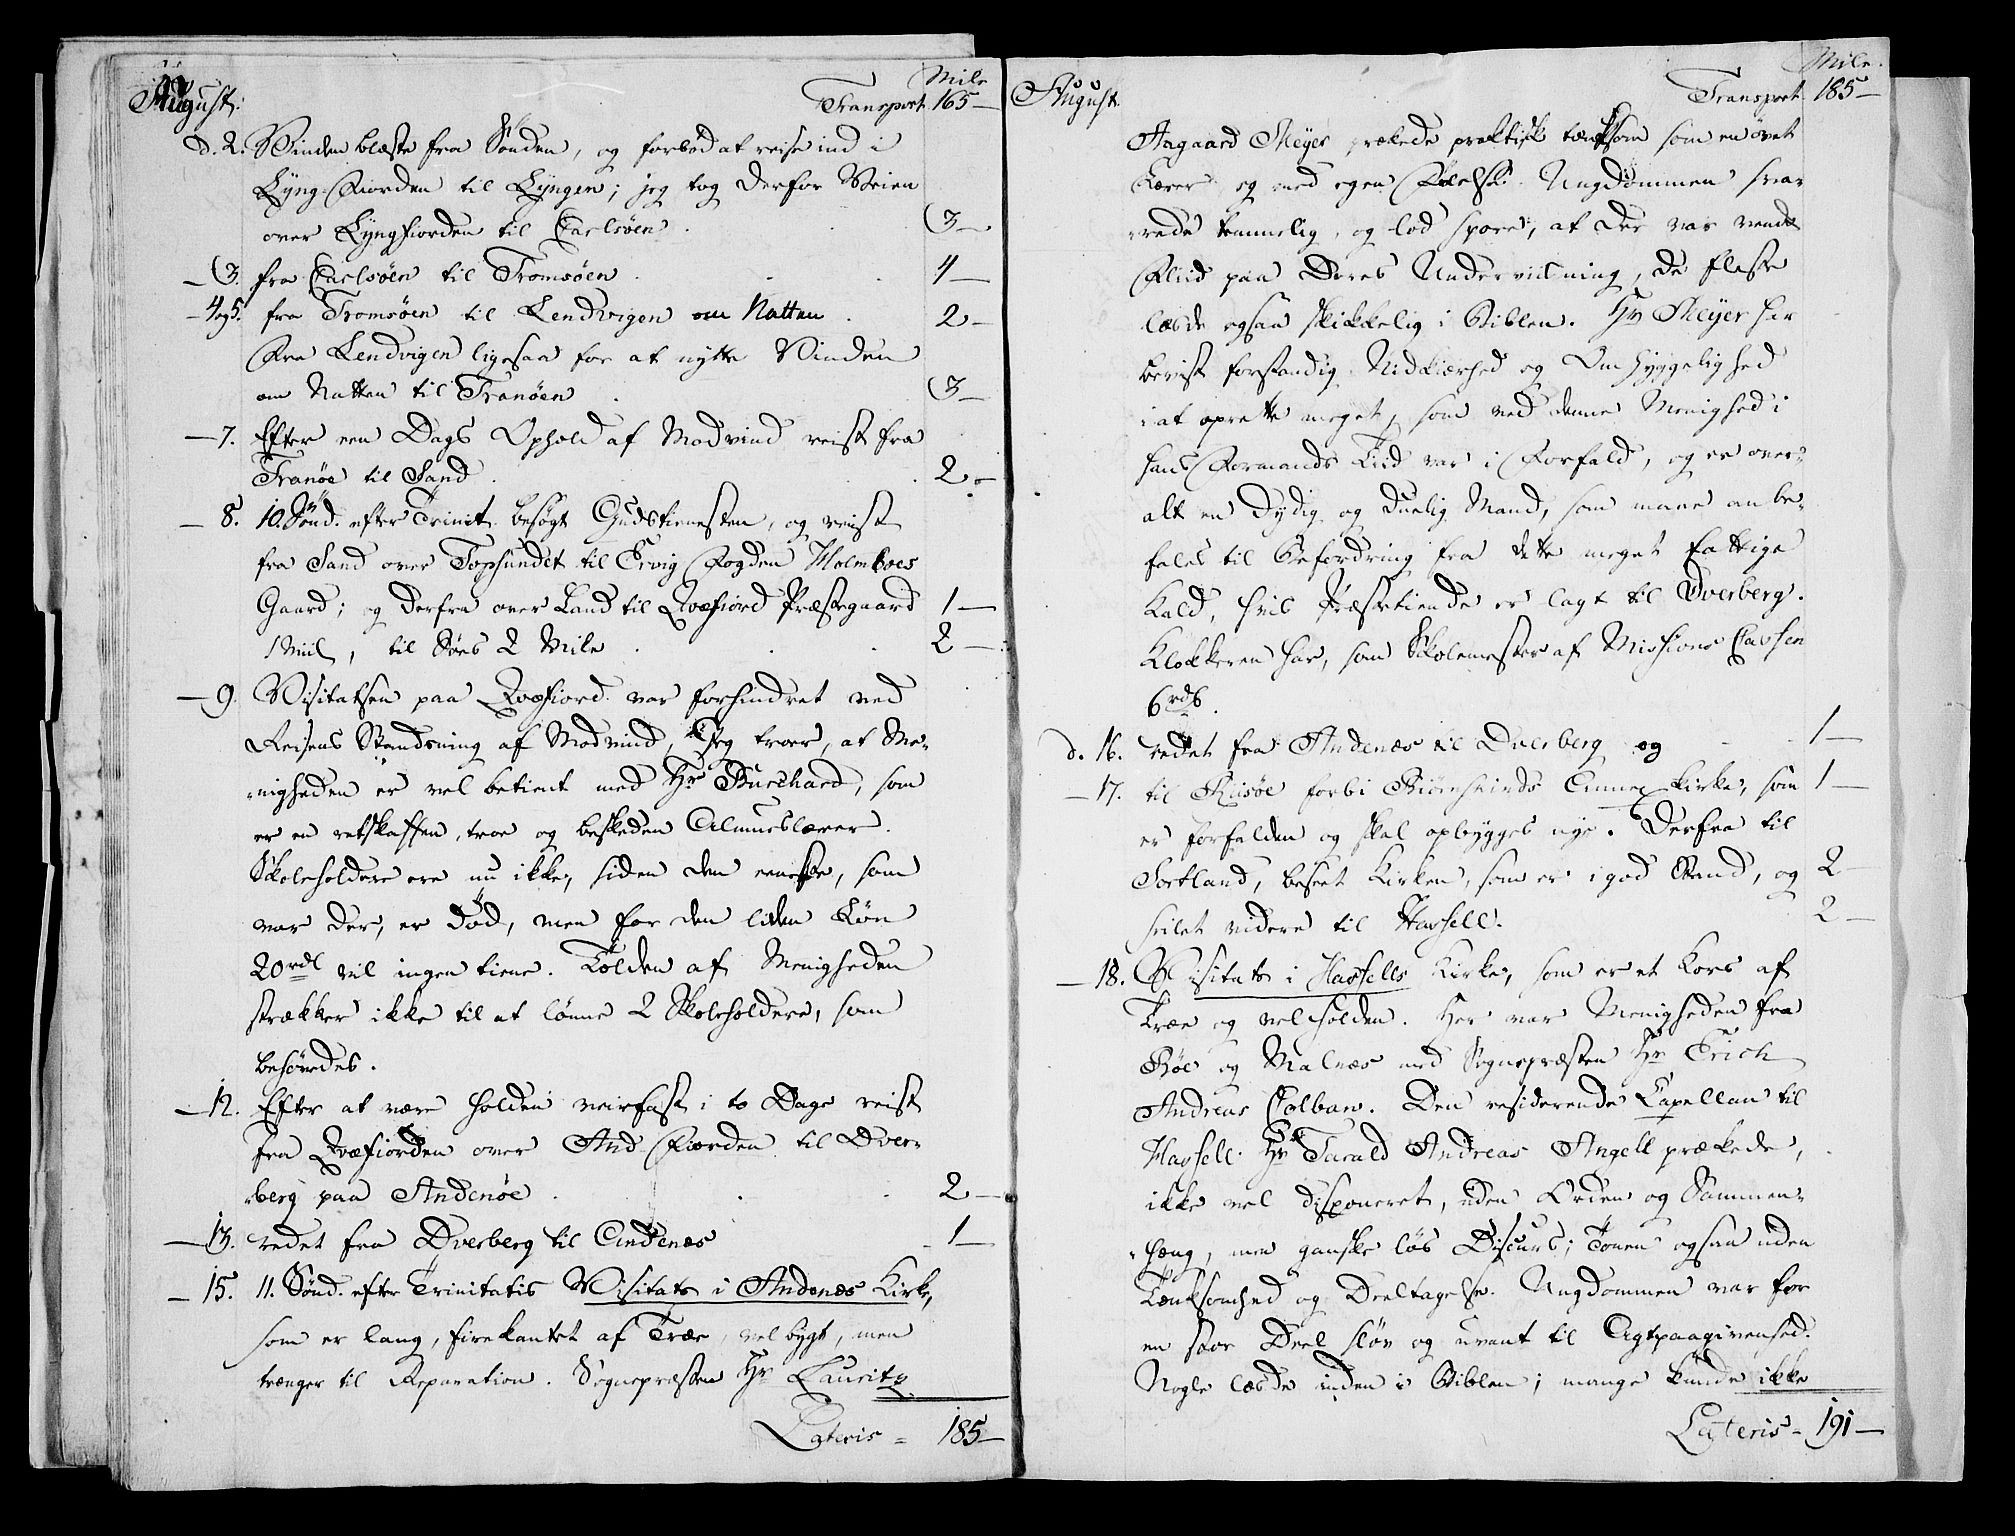 August.
Mile
Transport 165 —
d. 2. Vinden blæste fra Sønden, og forbød at reise ind i
Lyng-Fiorden til Lyngen; jeg tog derfor Veien
over Lyngfiorden til Carlsøen . . 3 —
— 3. fra Carlsøen til Tromsøen . . . 4 —
— 4 og 5. fra Tromsøen til Lendvigen om Natten . 2 —
Fra Lendvigen ligesaa for at nytte Vinden
om Natten til Tranøen . 3 —
— 7. Efter een Dags Ophold af Modvind reist fra
Tranøe til Sand . . . 2 —
— 8. 10. Sønd. efter Trinit. besøgt Gudstienesten, og reist
fra Sand over Topsundet til Ervig Fogden Holmboes
Gaard; og derfra over Land til Qvæfiord Præstegaard 1 —
1 Miil, til Søes 2 Mile . . . 2 —
— 9. Visitatsen paa Qvæfiord var forhindret ved
Reisens Standsning af Modvind, Jeg troer, at Me-
nigheden er vel betient med Hr Burchard, som
er en retskaffen, troe og beskeden Almueslærer.
Skoleholdere ere nu ikke, siden den eeneste, som
var der, er død, men for den liden Løn
20 rdl vil ingen tiene. Tolden af Menigheden
strækker ikke til at lønne 2 Skoleholdere, som
behøvedes.
— 12. Efter at være holden veirfast i to Dage reist
fra Qvæfiorden over And-Fiorden til Dver-
berg paa Andenøe . . . 2 —
— 13. redet fra Dverberg til Andenæs 1 —
— 15. 11. Sønd. efter Trinitatis Visitats i Andenæs Kirke,
som er lang, firekantet af Træe, vel bygt, men
trænger til Reparation. Sognepræsten Hr Lauritz
Lateris = 185 —
August.
Mile.
Transport 185 —
Aagaard Meyer prækede praktisk tænksom som en øvet
Lærer og med egen Følelse. Ungdommen sva-
rede temmelig, og lod spore, at der var vendt
Fliid paa deres Underviisning, de fleste
læsde ogsaa skikkelig i Biblen. Hr Meyer har
beviist forstandig Nidkiærhed og Omhyggelighed
i at oprette meget, som ved denne Menighed i
hans Formands Tiid var i Forfald, og er over-
alt en dydig og duelig Mand, som maae anbe-
fales til Befordring fra dette meget fattige
Kald, hvis Præstetiende er lagt til Dverberg.
Klokkeren har, som Skolemester af Missions Cassen
6 rdl.
d. 16. redet fra Andenæs til Dverberg og 1 —
— 17. til Riisøe forbi Biørnskinds Annex Kirke, som 1 —
er forfalden og skal opbygges nye. Derfra til
Sortland, beseet Kirken, som er i god Stand, og 2 —
seilet videre til Hassell. 2 —
— 18. Visitats i Hassells Kirke, som er et Kors af
Træe og velholden. Her var Menigheden fra
Bøe og Malnæs med Sognepræsten Hr Erich
Andreas Colban. Den residerende Capellan til
Hassell Hr Tarald Andreas Angell prækede,
ikke vel disponeret, uden Orden og Sammen-
hæng, men ganske løs Discurs; Tonen ogsaa uden
Tænksomhed og Deeltagelse. Ungdommen var for
en stor Deel sløv og uvant til Agtpaagivenhed.
Nogle læsde inden i Biblen; mange kunde ikke
Lateris = 191 —